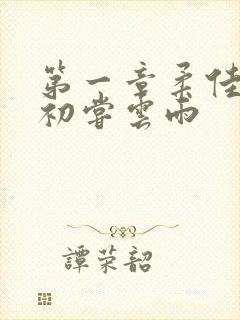 第一章柔佳
初嘗雲雨
譚荣韶